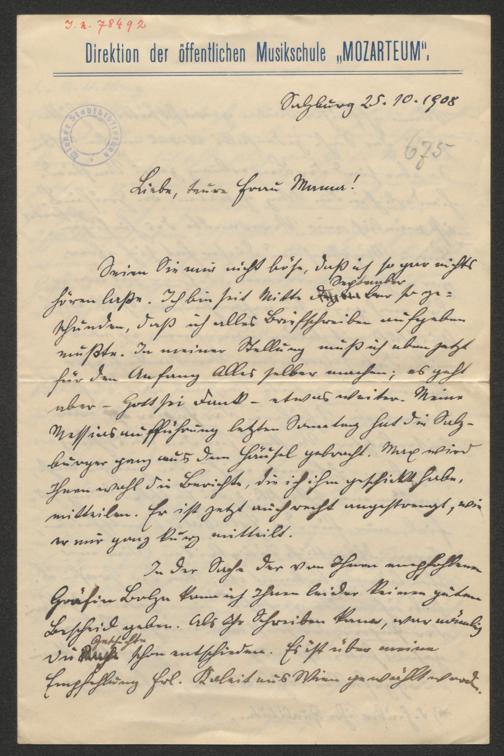 I. N. 78492
Direktion der öffentlichen Musikschule „MOZARTEUM“.
Salzburg 25.10.1908
675
Liebe, teure Frau Mama!
Seien Sie mir nicht böse, daß ich so gar nichts
hören laße. Ich bin seit Mitte September so ge-
schunden, daß ich alles Briefschreiben aufgeben
mußte. In meiner Stellung muß ich eben jetzt
für den Anfang Alles selber machen; es geht
aber – Gott sei Dank – etwas weiter. Meine
Messiasaufführung letzten Sonntag hat die Salz-
burger ganz aus dem Häusel gebracht. Max wird
Ihnen wohl die Berichte, die ich ihm geschickt habe,
mitteilen. Er ist jetzt auch recht angestrengt, wie
er mir ganz kurz mitteilt.
In der Sache der von Ihnen empfohlenen
Gräfin kann ich Ihnen leider keinen guten
Bescheid geben. Als Ihr Schreiben kam, war nämlich
die Geschichte schon entschieden. Es ist über meine
Empfehlung Frl. aus Wien gewählt worden.